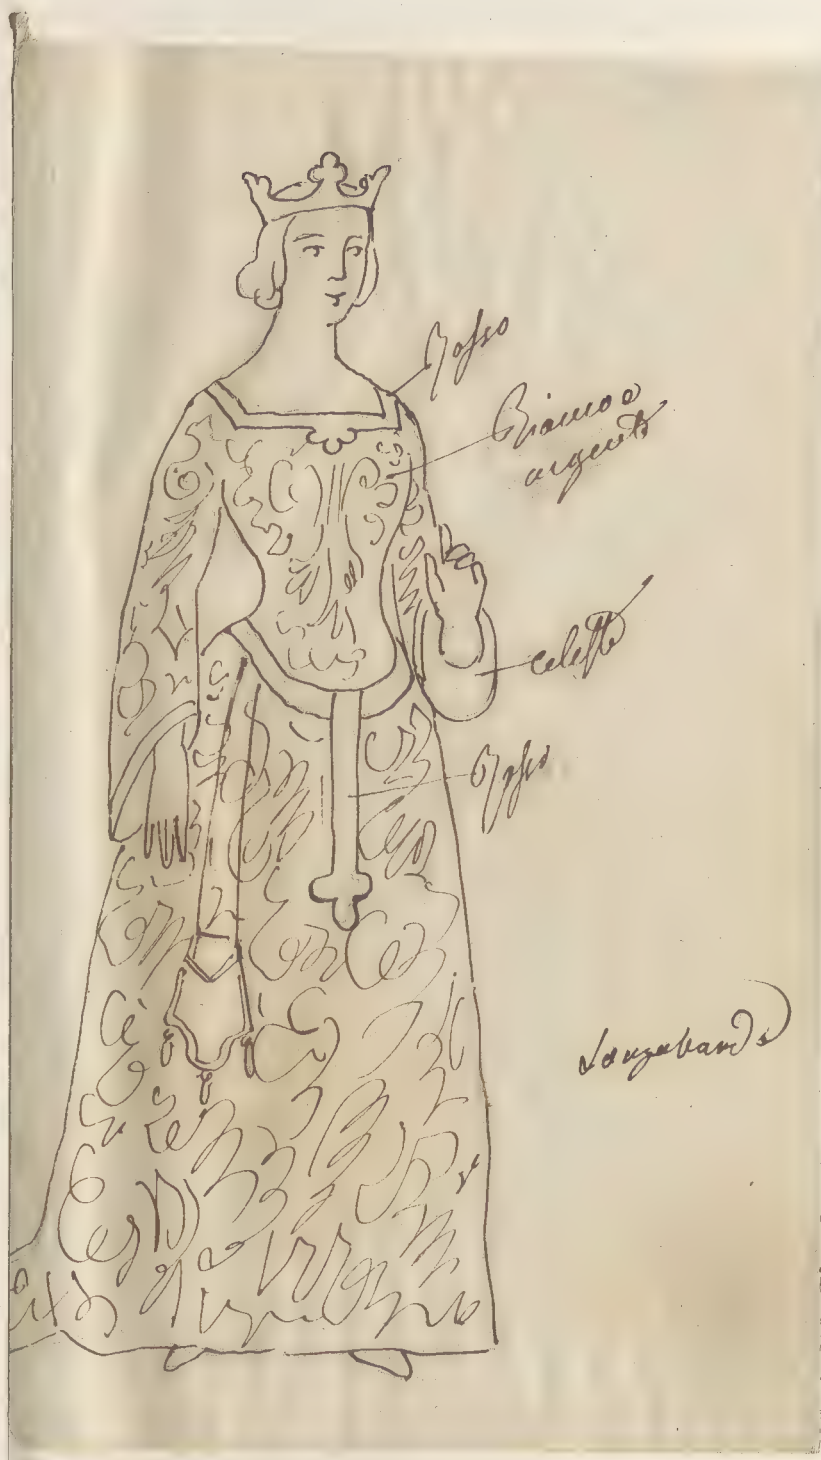 Rosso
Bianco e
argento
celeste
Rosso
Longobarda